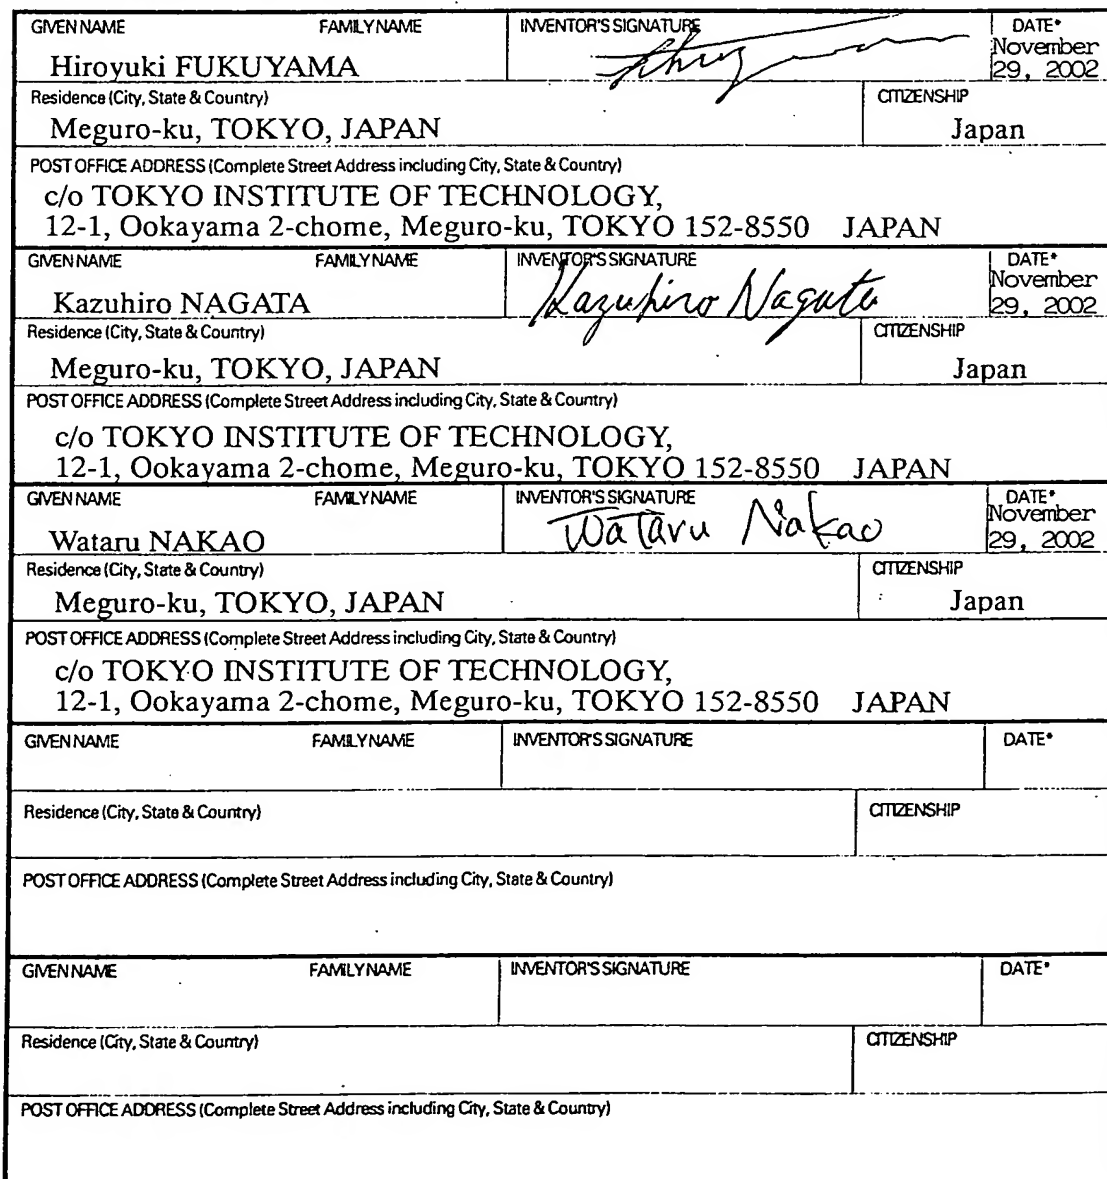 GIVEN NAME FAMILY NAME INVENTOR'S SIGNATURE DATE*
Hiroyuki FUKUYAMA November
29, 2002
Residence (City, State & Country) CITIZENSHIP
Meguro-ku, TOKYO, JAPAN Japan
POST OFFICE ADDRESS (Complete Street Address including City, State & Country)
c/o TOKYO INSTITUTE OF TECHNOLOGY,
12-1, Ookayama 2-chome, Meguro-ku, TOKYO 152-8550 JAPAN
GIVEN NAME FAMILY NAME INVENTOR'S SIGNATURE DATE*
Kazuhiro NAGATA Kazuhiro Nagata November
29, 2002
Residence (City, State & Country) CITIZENSHIP
Meguro-ku, TOKYO, JAPAN Japan
POST OFFICE ADDRESS (Complete Street Address including City, State & Country)
c/o TOKYO INSTITUTE OF TECHNOLOGY,
12-1, Ookayama 2-chome, Meguro-ku, TOKYO 152-8550 JAPAN
GIVEN NAME FAMILY NAME INVENTOR'S SIGNATURE DATE*
Wataru NAKAO Wataru Nakao November
29, 2002
Residence (City, State & Country) CITIZENSHIP
Meguro-ku, TOKYO, JAPAN Japan
POST OFFICE ADDRESS (Complete Street Address including City, State & Country)
c/o TOKYO INSTITUTE OF TECHNOLOGY,
12-1, Ookayama 2-chome, Meguro-ku, TOKYO 152-8550 JAPAN
GIVEN NAME FAMILY NAME INVENTOR'S SIGNATURE DATE*
Residence (City, State & Country) CITIZENSHIP
POST OFFICE ADDRESS (Complete Street Address including City, State & Country)
GIVEN NAME FAMILY NAME INVENTOR'S SIGNATURE DATE*
Residence (City, State & Country) CITIZENSHIP
POST OFFICE ADDRESS (Complete Street Address including City, State & Country)